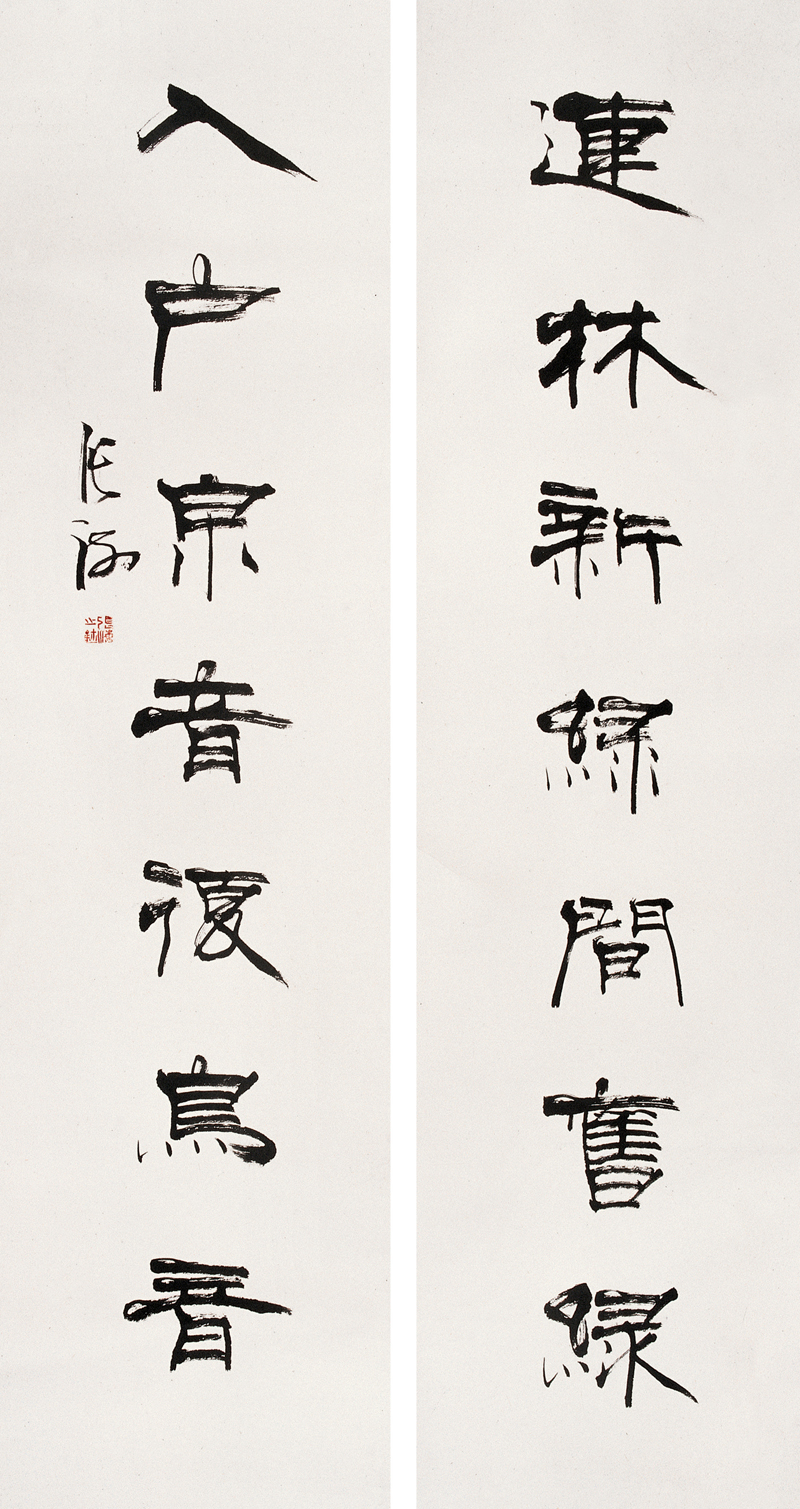 連林新綠間舊綠
入户泉音復鳥音
張海